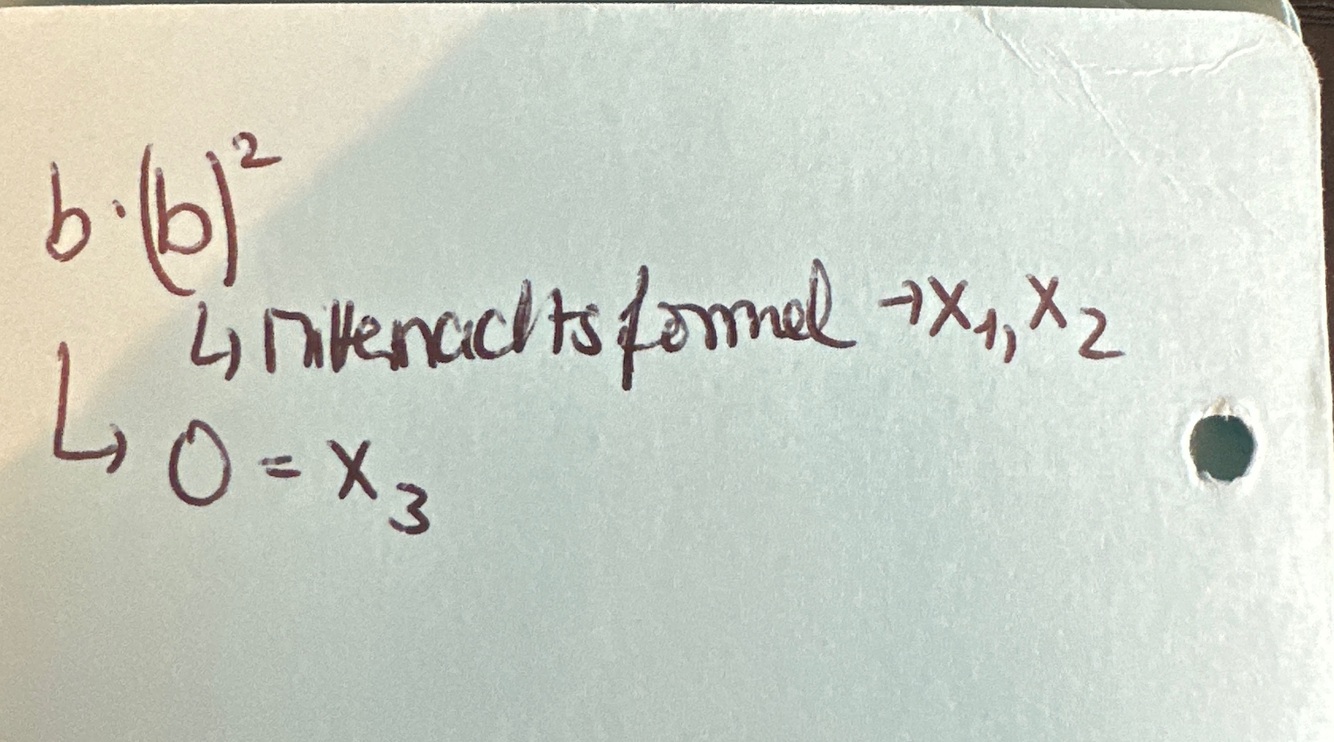 b·(b)²
↳ Mitternachtsformel → x₁, x₂
↳ 0 = x₃